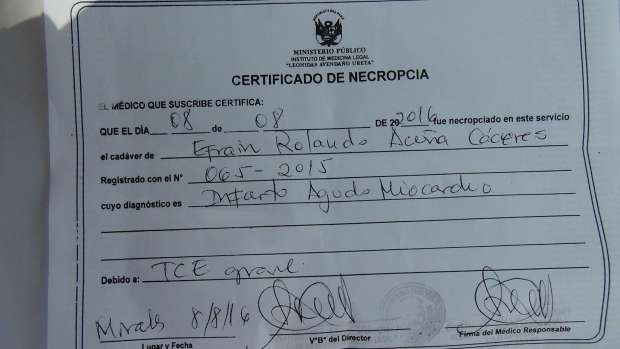 MINISTERIO PÚBLICO
INSTITUTO DE MEDICINA LEGAL
"LEONIDAS AVENDAÑO URETA"
CERTIFICADO DE NECROPCIA
EL MÉDICO QUE SUSCRIBE CERTIFICA:
QUE EL DÍA 08 de 08 DE 20 2016 fue necropciado en este servicio
el cadáver de Efraín Rolando Aceña Cáceres
Registrado con el N° 065-2015
cuyo diagnóstico es Infarto Agudo Miocardio
Debido a: TCE grave.
Morales 8/8/16
Lugar y Fecha V°B° del Director Firma del Médico Responsable